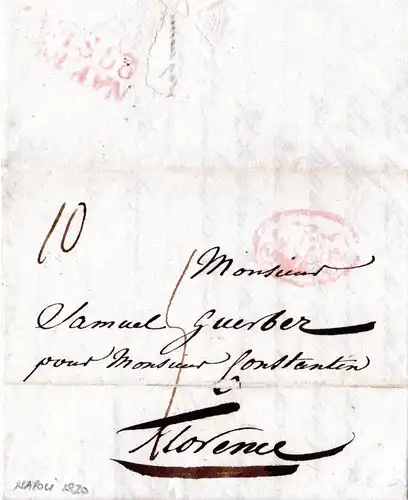 10
Monsieur
Samuel Guerber
pour Monsieur Constantin
à
Florence
NAPOLI 1820